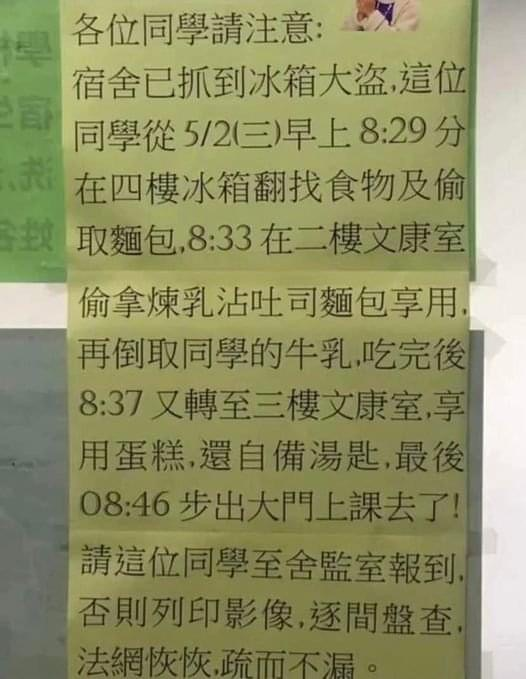 各位同學請注意:
宿舍已抓到冰箱大盜,這位
同學從5/2(三)早上8:29分
在四樓冰箱翻找食物及偷
取麵包,8:33在二樓文康室
偷拿煉乳沾吐司麵包享用,
再倒取同學的牛乳,吃完後
8:37又轉至三樓文康室,享
用蛋糕,還自備湯匙,最後
08:46步出大門上課去了!
請這位同學至舍監室報到,
否則列印影像,逐間盤查,
法網恢恢,疏而不漏。